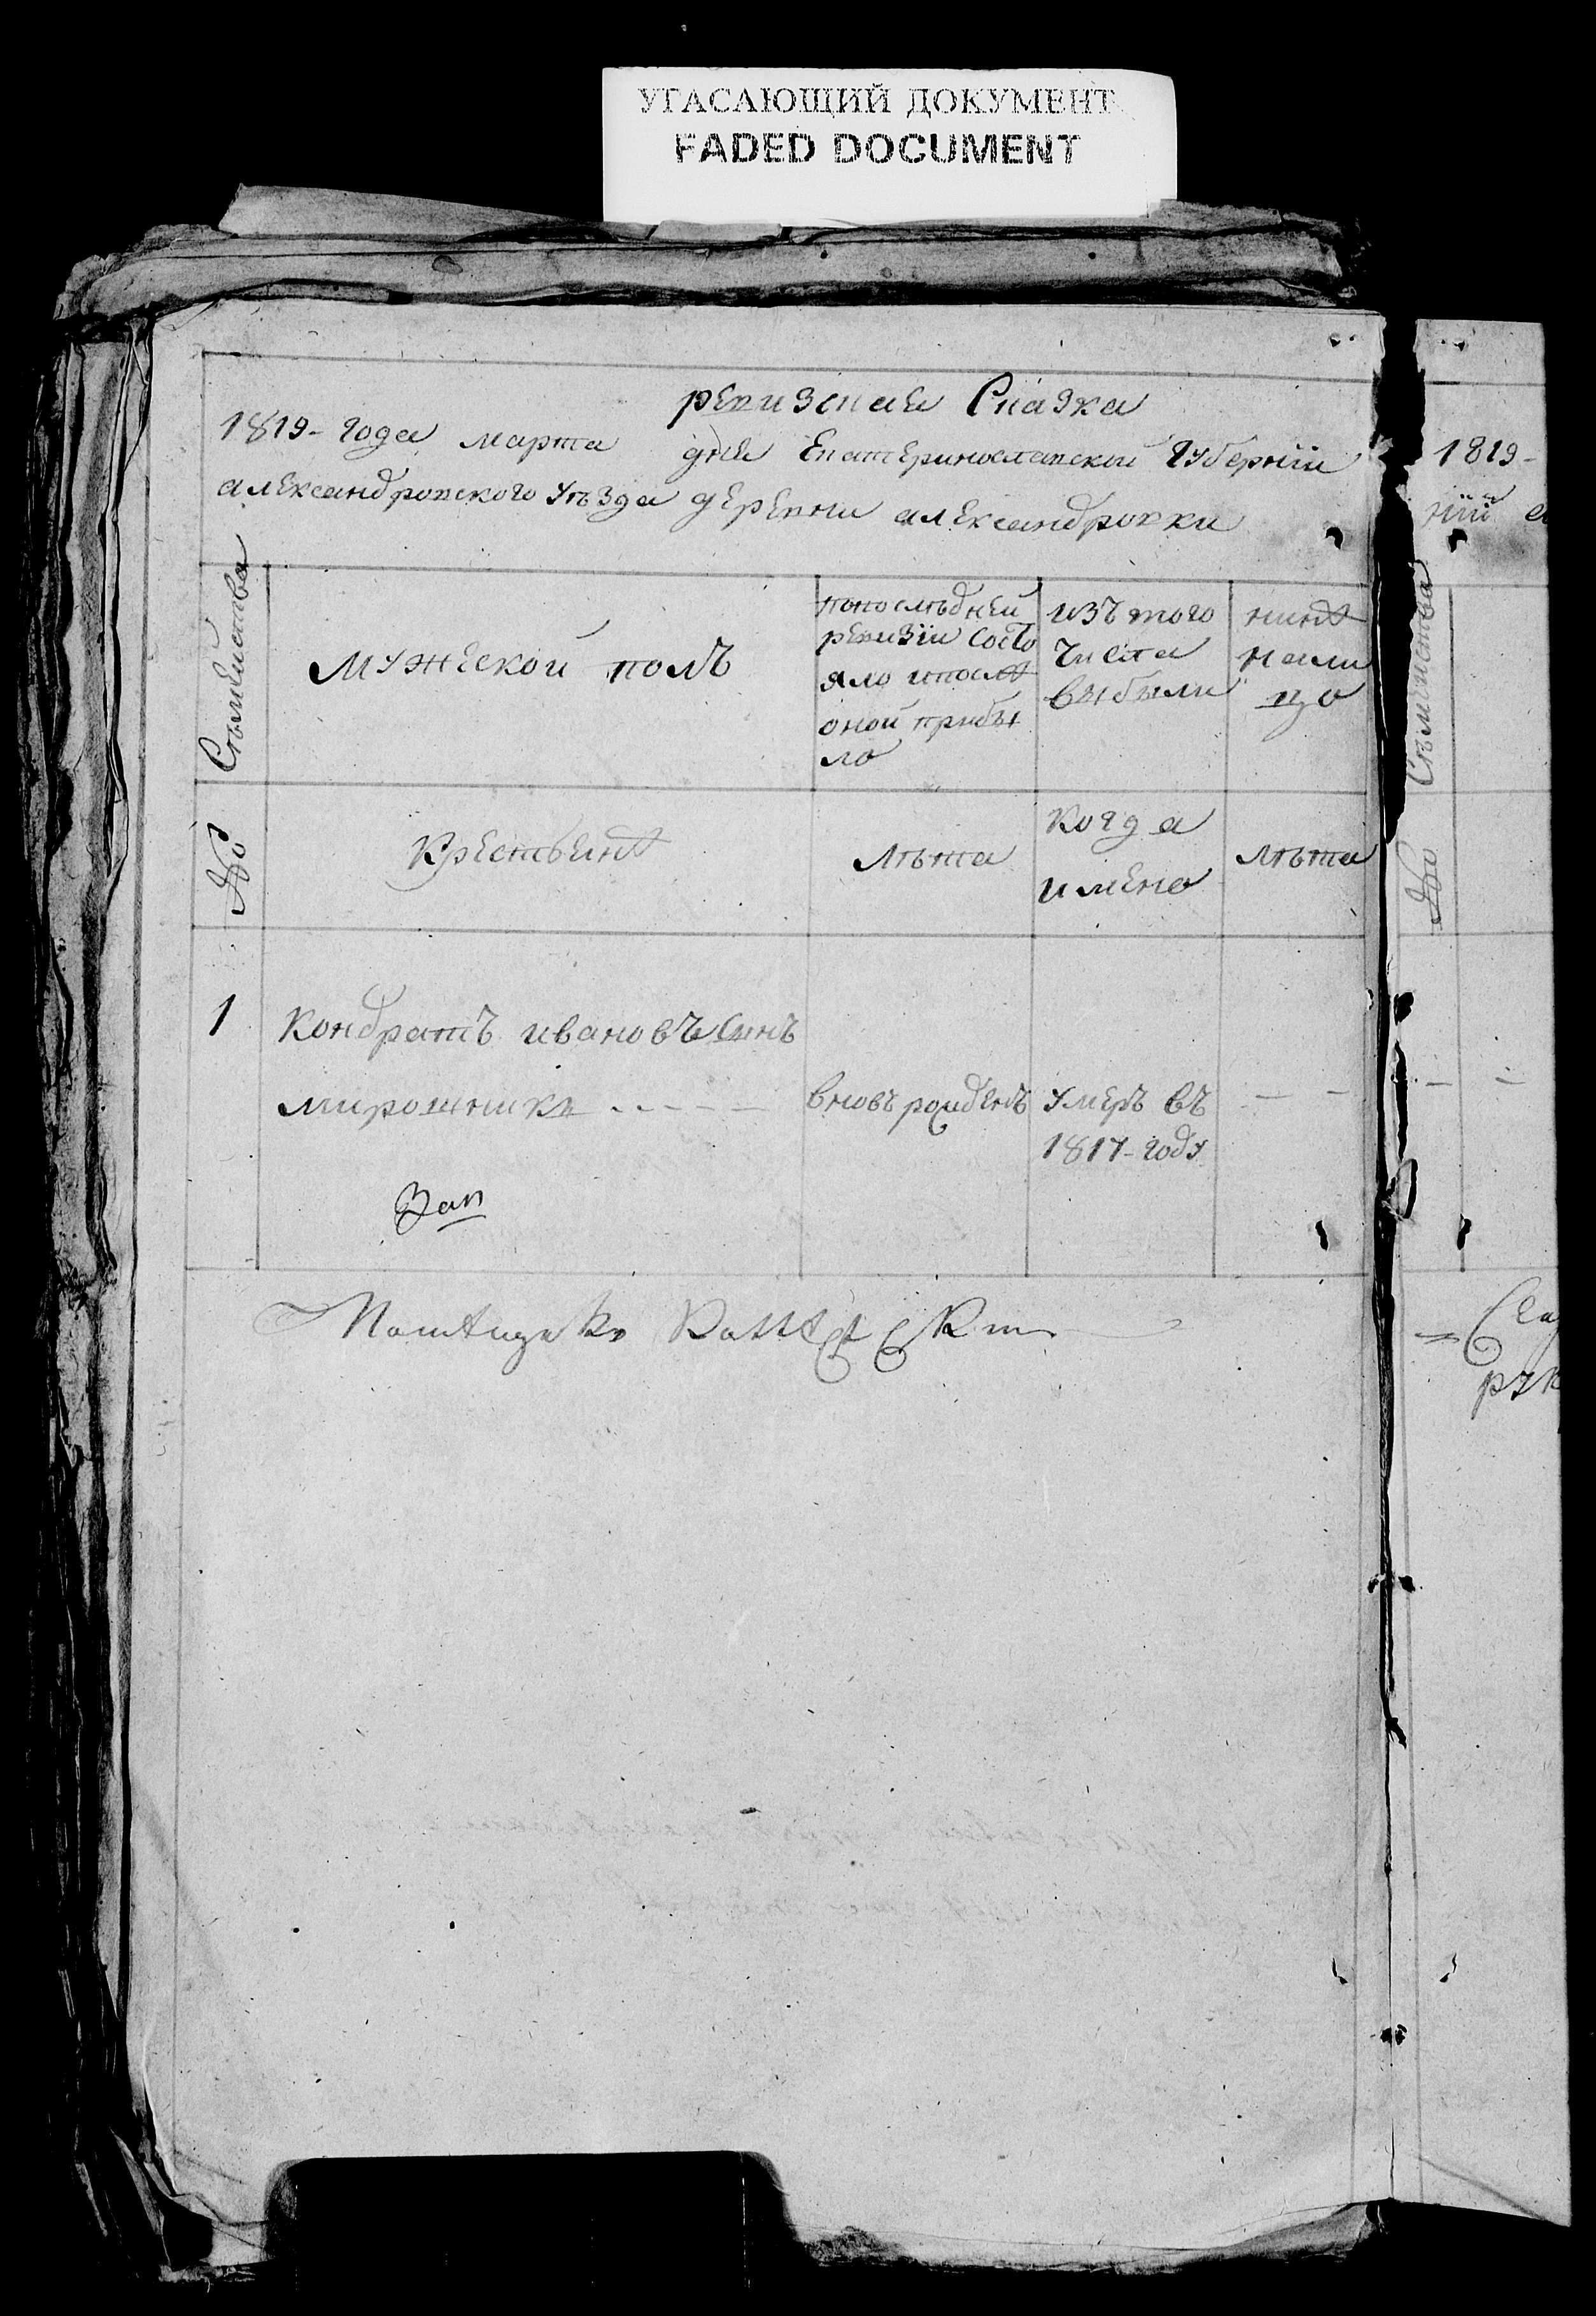 УГАСАЮЩИЙ ДОКУМЕНТ
FADED DOCUMENT
ревизская Сказка
1819- года марта дня Екатеринославской Губернïи
александровского Уѣзда деревни александровки
Сѣмейства
мужеской полъ
попослѣдней
ревизïи состо
яло ипослѣ
оной прибы
ло
изъ того
числа
выбыли
нинѣ
нали
цо
№
Крестьянѣ
лѣта
когда
имено
лѣта
1
Кондратъ ивановъ Синъ
мирошникъ
вновь рожденъ
умеръ въ
1817- году
1819-
нïй
Сѣмейства
№